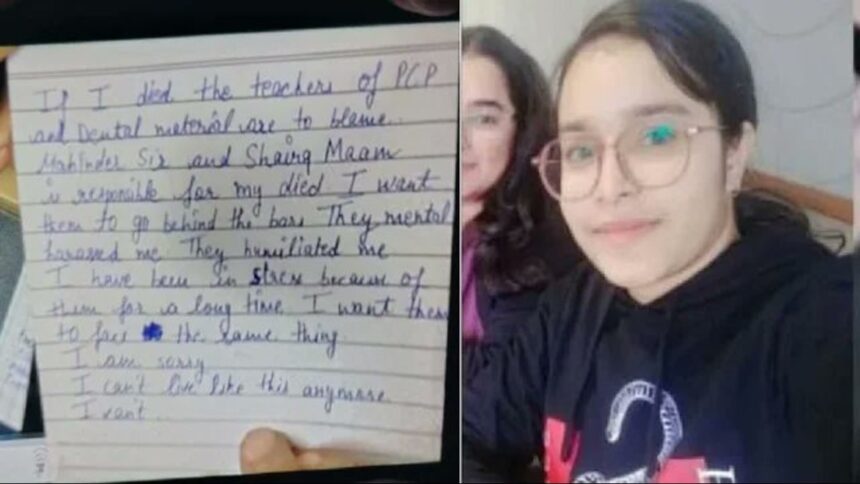 If I died the teachers of PCP
and Dental material are to blame.
Mahinder Sir and Shairq Maam
is responible for my died I want
them to go behind the bars They mental
harassed me. They humiliated me
I have been in stress because of
them for a long time. I want them
to face the same thing
I am sorry
I can't live like this anymore
I can't.